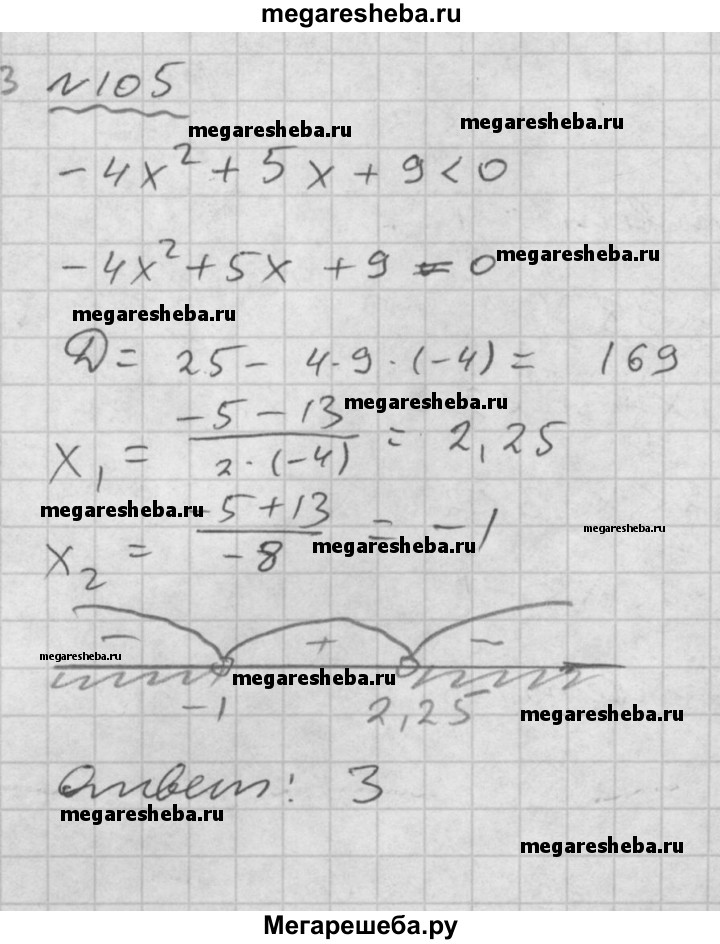 megaresheba.ru
3 №105
megaresheba.ru megaresheba.ru
-4x² + 5x + 9 < 0
-4x² + 5x + 9 = 0 megaresheba.ru
megaresheba.ru
D = 25 - 4·9·(-4) = 169
x₁ = (-5 - 13)/(2·(-4)) = 2,25
megaresheba.ru
megaresheba.ru
x₂ = (-5 + 13)/(-8) = -1
megaresheba.ru
megaresheba.ru
- + -
megaresheba.ru
megaresheba.ru
-1 2,25
megaresheba.ru
Ответ: 3
megaresheba.ru
megaresheba.ru
Мегарешеба.ру